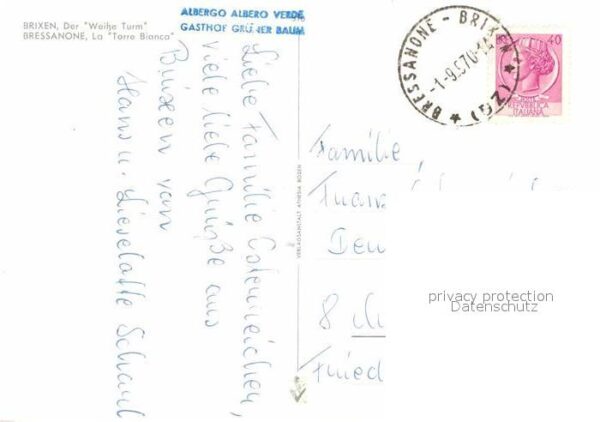 BRIXEN, Der "Weiße Turm"
BRESSANONE, La "Torre Bianca"
ALBERGO ALBERO VERDE
GASTHOF GRÜNER BAUM
Liebe Familie Ostenreicher,
viele liebe Grüße aus
Brixen von
Hans u. Lieselotte Schaub
VERLAGSANSTALT ATHESIA BOZEN
BRESSANONE - BRIXEN
(BZ)
40
REPUBBLICA
ITALIANA
Familie
8
privacy protection
Datenschutz